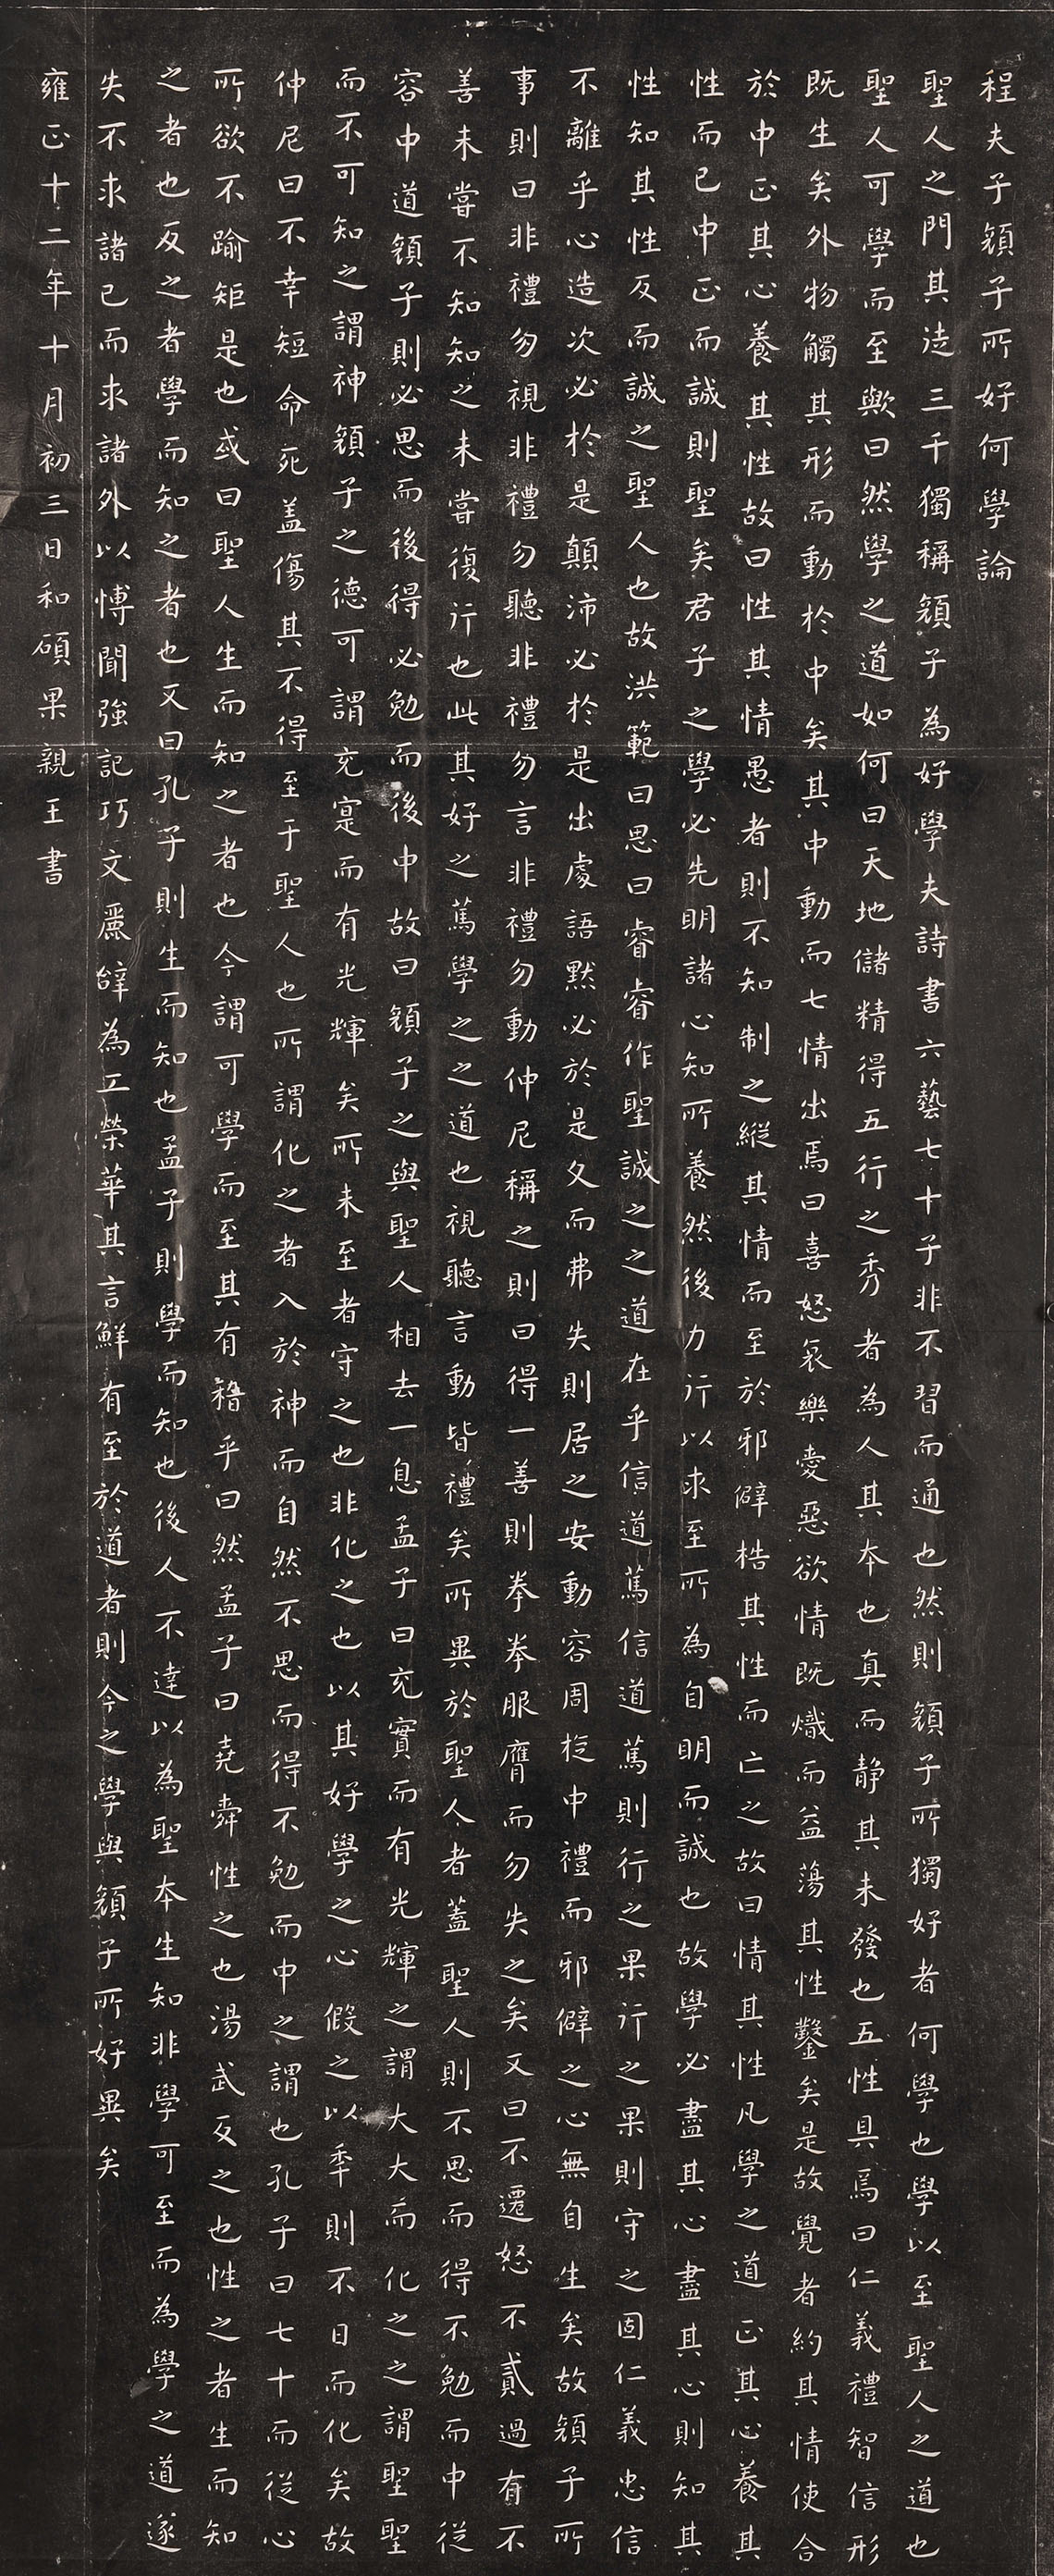 程夫子顏子所好何學論
聖人之門其徒三千獨稱顏子為好學夫詩書六藝七十子非不習而通也然則顏子所獨好者何學也學以至聖人之道也
聖人可學而至歟曰然學之道如何曰天地儲精得五行之秀者為人其本也真而静其未發也五性具焉曰仁義禮智信形
既生矣外物觸其形而動於中矣其中動而七情出焉曰喜怒哀樂愛惡欲情既熾而益蕩其性鑿矣是故覺者約其情使合
於中正其心養其性故曰性其情愚者則不知制之縱其情而至於邪僻梏其性而亡之故曰情其性凡學之道正其心養其
性而已中正而誠則聖矣君子之學必先明諸心知所養然後力行以求至所為自明而誠也故學必盡其心盡其心則知其
性知其性反而誠之聖人也故洪範曰思曰睿睿作聖誠之之道在乎信道篤信道篤則行之果行之果則守之固仁義忠信
不離乎心造次必於是顛沛必於是出處語默必於是久而弗失則居之安動容周旋中禮而邪僻之心無自生矣故顏子所
事則曰非禮勿視非禮勿聽非禮勿言非禮勿動仲尼稱之則曰得一善則拳拳服膺而勿失之矣又曰不遷怒不貳過有不
善未嘗不知知之未嘗復行也此其好之篤學之之道也視聽言動皆禮矣所異於聖人者蓋聖人則不思而得不勉而中從
容中道顏子則必思而後得必勉而後中故曰顏子之與聖人相去一息孟子曰充實而有光輝之謂大大而化之之謂聖聖
而不可知之謂神顏子之德可謂充寔而有光輝矣所未至者守之也非化之也以其好學之心假之以年則不日而化矣故
仲尼曰不幸短命死盖傷其不得至于聖人也所謂化之者入於神而自然不思而得不勉而中之謂也孔子曰七十而從心
所欲不踰矩是也或曰聖人生而知之者也今謂可學而至其有稽乎曰然孟子曰堯舜性之也湯武反之也性之者生而知
之者也反之者學而知之者也又曰孔子則生而知也孟子則學而知也後人不達以為聖本生知非學可至而為學之道遂
失不求諸己而求諸外以博聞強記巧文麗辭為工榮華其言鮮有至於道者則今之學與顏子所好異矣
雍正十二年十月初三日和碩果親王書